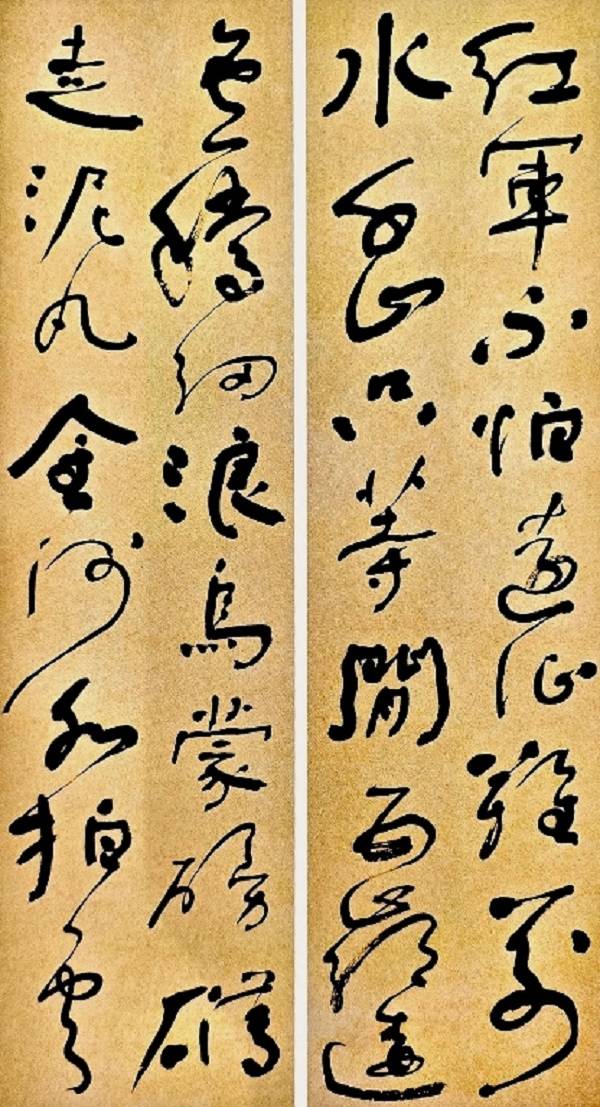 紅軍不怕遠征難萬
水千山只等閒五嶺逶
迤騰細浪烏蒙磅礴
走泥丸金沙水拍雲